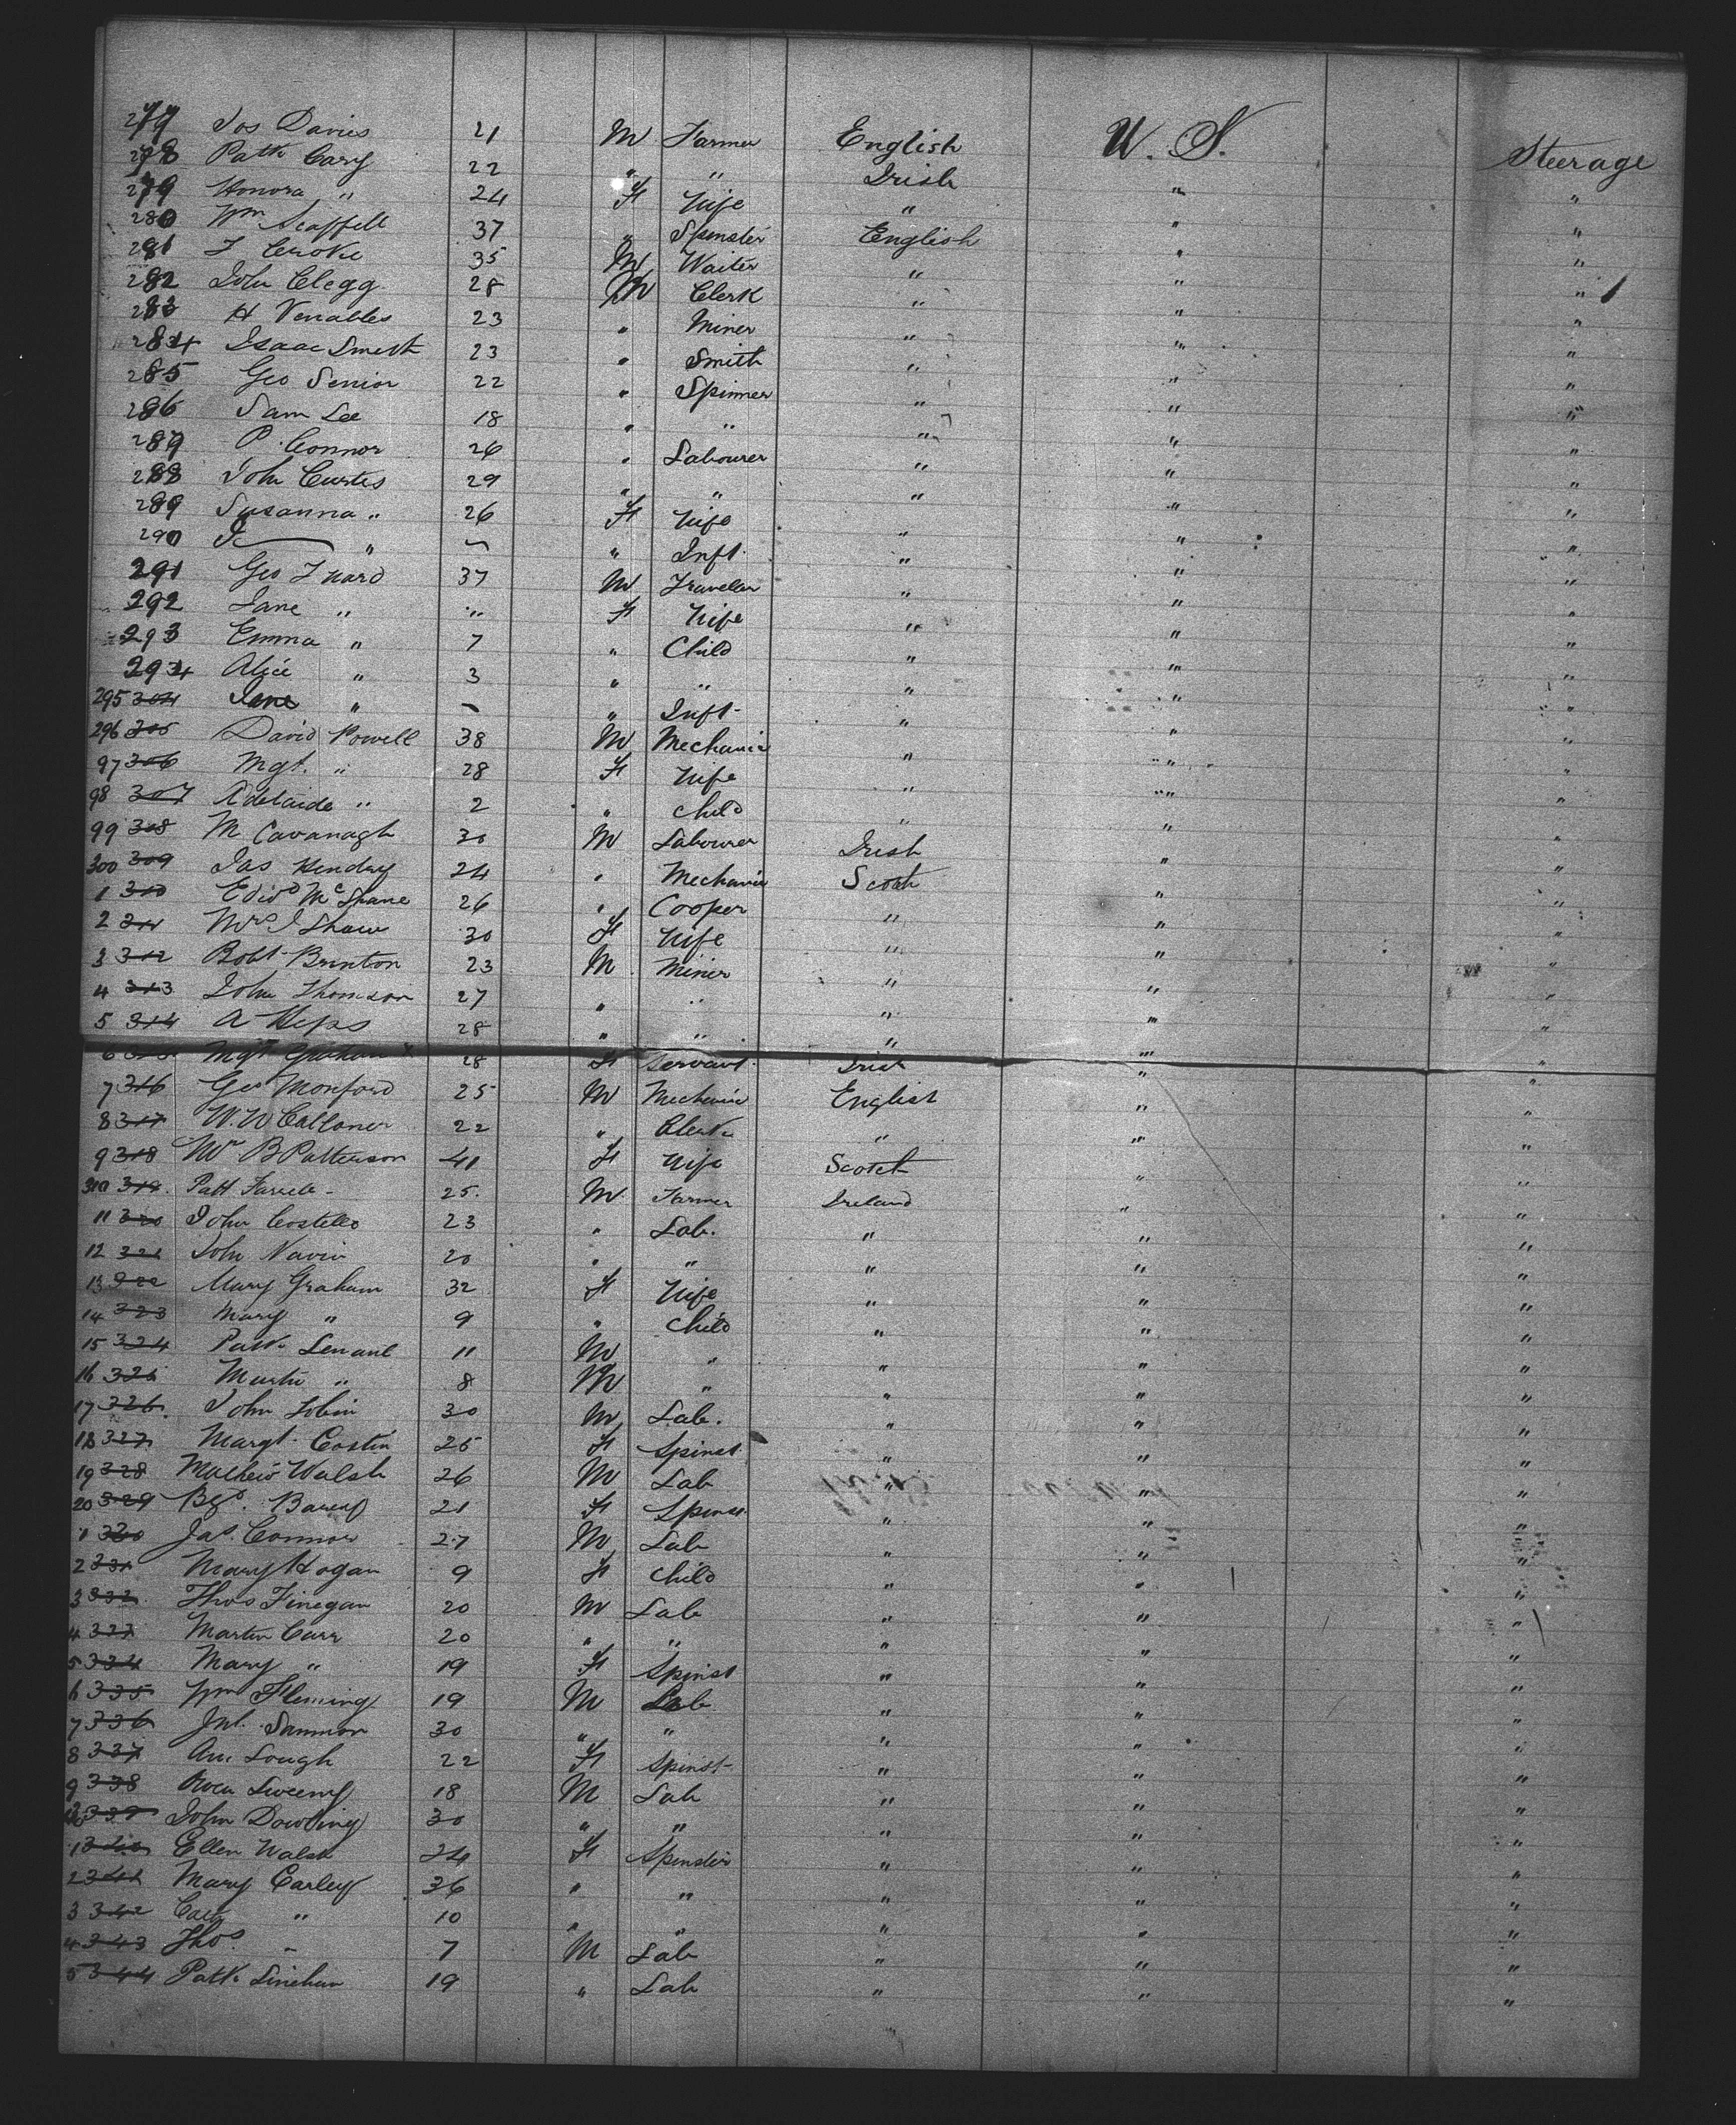 277 Jos Davies 21 M Farmer English U. S. Steerage
278 Patk Cary 22 " " Irish " "
279 Honora " 24 F Wife " " "
280 Wm Scaffell 37 " Spinster English " "
281 T Croke 35 M Waiter " " "
282 John Clegg 28 M Clerk " " "
283 H Venables 23 " Miner " " "
284 Isaac Smith 23 " Smith " " "
285 Geo Senior 22 " Spinner " " "
286 Sam Lee 18 " " " " "
287 P. Connor 26 " Labourer " " "
288 John Curtes 29 " " " " "
289 Susanna " 26 F Wife " " "
290 " " Inft. " " "
291 Geo 37 M Traveler " " "
292 Jane " " F Wife " " "
293 Emma " 7 " Child " " "
294 Alice " 3 " " " " "
295 304 Jane " " Inft- " " "
296 305 David Powell 38 M Mechanic " " "
97 306 Mgt. " 28 F Wife " " "
98 307 Adelaide " 2 " child " " "
99 308 M Cavanagh 30 M Labourer Irish " "
300 309 Jas Hendry 24 " Mechanic Scoth " "
1 310 Edwd McShane 26 " Cooper " " "
2 311 Mrs J Shaw 30 F Wife " " "
3 312 Robt Brinton 23 M Miner " " "
4 313 John Thomson 27 " " " " "
5 314 A Heps 28 " " " " "
6 315 Mgt Graham 28 F Servant. Irish " "
7 316 Geo Monford 25 M Mechanic English " "
8 317 W. W Calloner 22 " Clerk " " "
9 318 Mrs B Patterson 41 F Wife Scotch " "
310 319. Patt Farrele- 25. M Farmer Ireland " "
11 320 John Costello 23 " Lab. " " "
12 321 John Navin 20 " " " " "
13 322 Mary Graham 32 F Wife " " "
14 323 Mary " 9 " Child " " "
15 324 Patk 11 M " " " "
16 325 " 8 M " " " "
17 326. John Tobin 30 M Lab. " " "
18 327 Margt. Costin 25 F Spinst " " "
19 328 Mathew Walsh 26 M Lab " " "
20 329 Bgd. 21 F Spinst. " " "
1 330 Jas. Connor 27 M Lab " " "
2 331 Mary Hogan 9 F Child " " "
3 332 Thos Finegan 20 M Lab " " "
4 333 Martin Carr 20 " " " " "
5 334 Mary " 19 F Spinst " " "
6 335 Wm Fleming 19 M Lab " " "
7 336 Sammon 30 " " " " "
8 337 Ann Lough 22 F Spinst- " " "
9 338 Sweeny 18 M Lab " " "
339 John Dowling 30 " " " " "
1 340 Ellen Walsh 24 F Spinster " " "
2 341 Mary Carley 36 " " " " "
3 342 Cath " 10 " " " " "
4 343 Thos. " 7 M Lab " " "
5 344 Patk Linehan 19 " Lab " " "